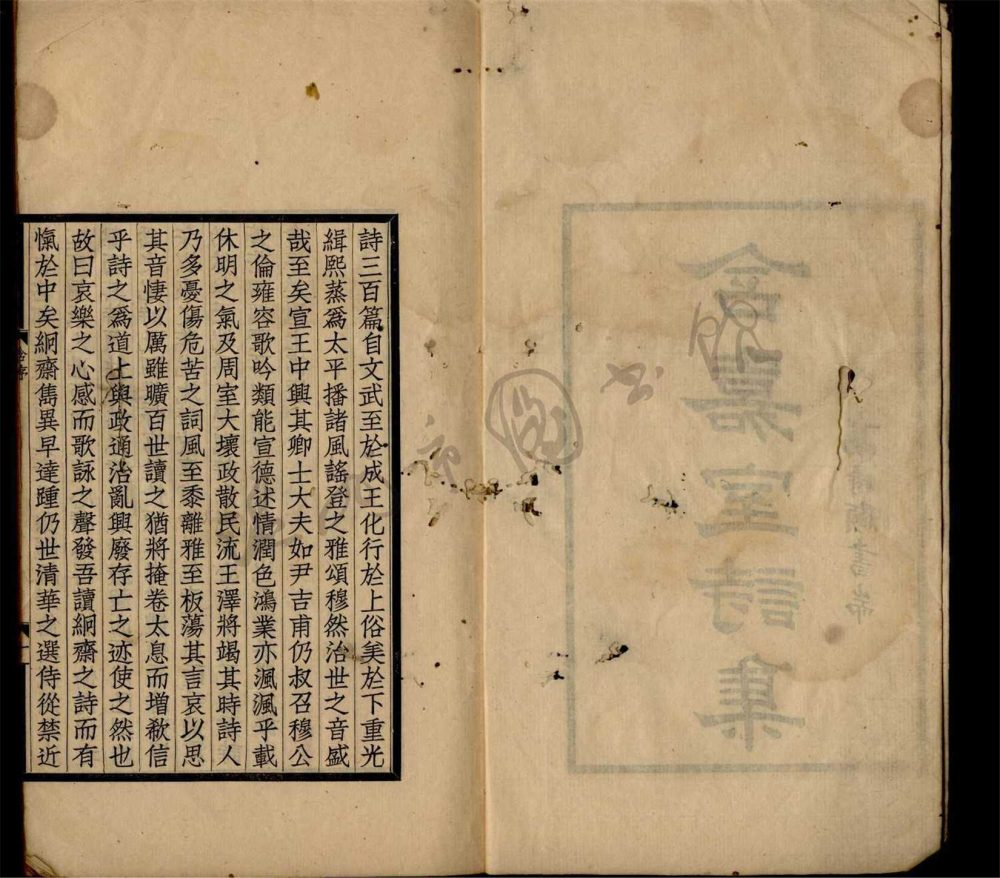 含嘉室詩集
詩三百篇自文武至於成王化行於上俗美於下重光
緝熙蒸為太平播諸風謠登之雅頌穆然治世之音盛
哉至矣宣王中興其卿士大夫如尹吉甫仍叔召穆公
之倫雍容歌吟類能宣德述情潤色鴻業亦渢渢乎載
休明之氣及周室大壞政散民流王澤將竭其時詩人
乃多憂傷危苦之詞風至黍離雅至板蕩其言哀以思
其音悽以厲雖曠百世讀之猶將掩卷太息而增欷信
乎詩之為道上與政通治亂興廢存亡之迹使之然也
故曰哀樂之心感而歌詠之聲發吾讀絅齋之詩而有
愾於中矣絅齋雋異早達踵仍世清華之選侍從禁近